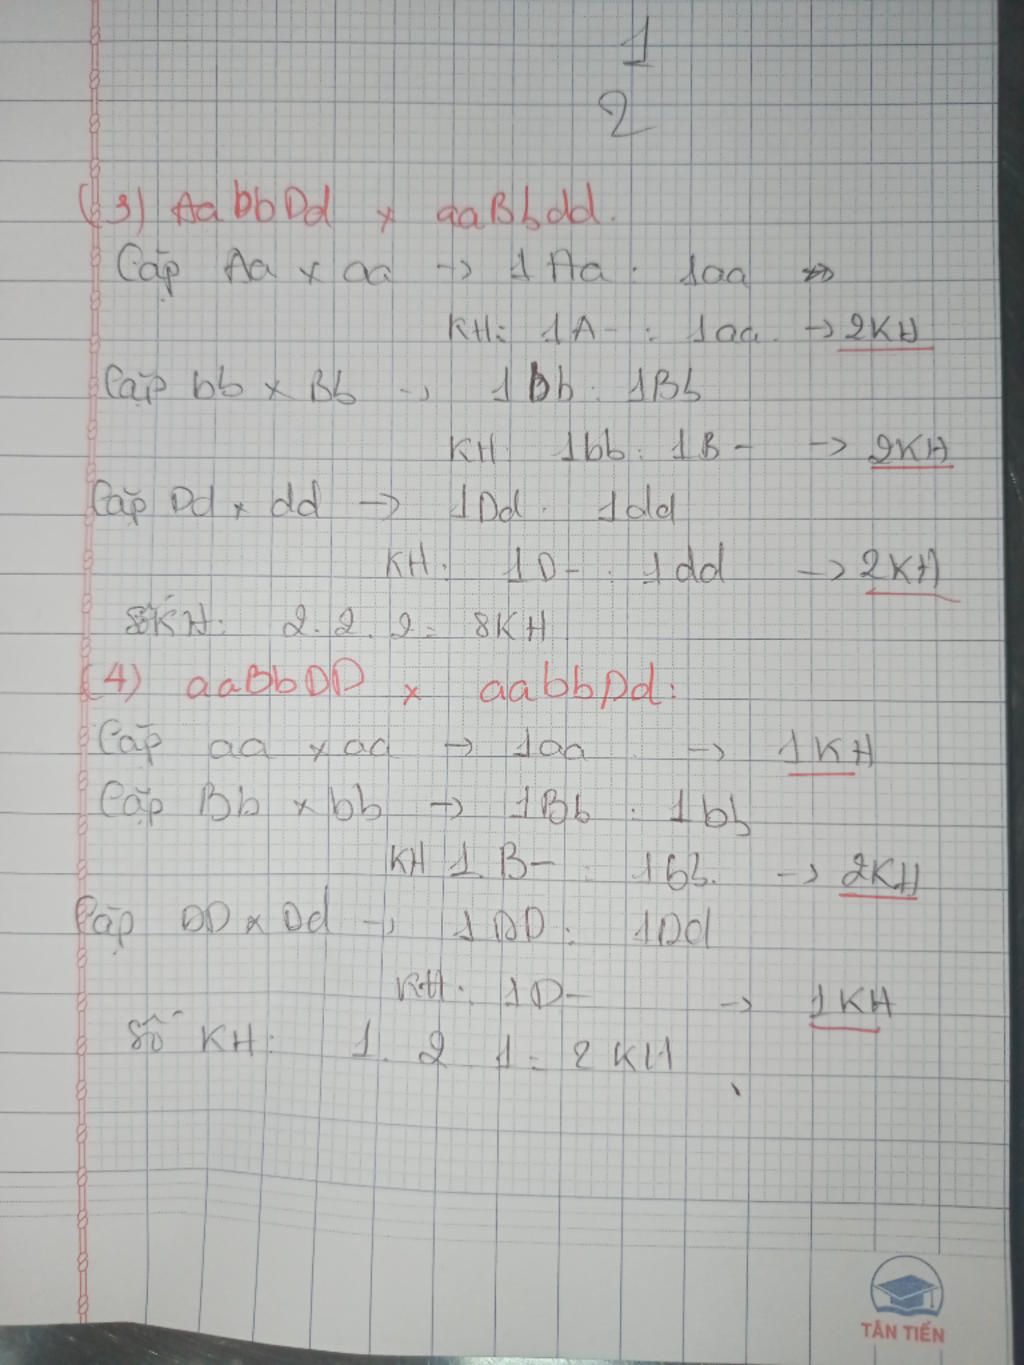 1
2
(3) AabbDd x aaBbdd.
Cặp Aa x aa → 1Aa : 1aa
KH: 1A- : 1aa. → 2KH
Cặp bb x Bb → 1bb : 1Bb
KH: 1bb : 1B- → 2KH
Cặp Dd x dd → 1Dd : 1dd
KH: 1D- : 1dd → 2KH
KH: 2.2.2 = 8KH
(4) aaBbDD x aabbDd:
Cặp aa x aa → 1aa → 1KH
Cặp Bb x bb → 1Bb : 1bb
KH 1B- : 1bb. → 2KH
Cặp DD x Dd → 1DD : 1Dd
KH: 1D- → 1KH
Số KH: 1. 2 1 = 2KH
TÂN TIẾN